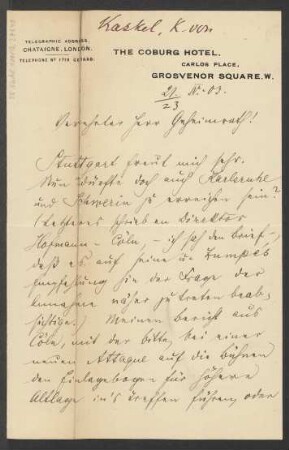 Kaskel, K. von
TELEGRAPHIC ADDRESS,
CHATAIGNE, LONDON.
TELEPHONE No 1718 GERARD.
THE COBURG HOTEL.
CARLOS PLACE,
GROSVENOR SQUARE. W.
03.
Verehrter Herr Geheimrath!
Stuttgart freut mich sehr.
Nun dürfte doch auch Karlsruhe
und Schwerin zu erreichen sein?
(Letzteres schrieb an Direktor
Hofmann - Cöln, - ich sah den Brief,
daß es auf seine u.
Empfehlung hin der Frage der
Annahme näher zu treten beab-
sichtige.) Meinen Bericht aus
Cöln, mit der Bitte, bei einer
neuen Attaque auf die Bühnen
den Einlagebogen für höhere
Altlage in's Treffen führen, oder